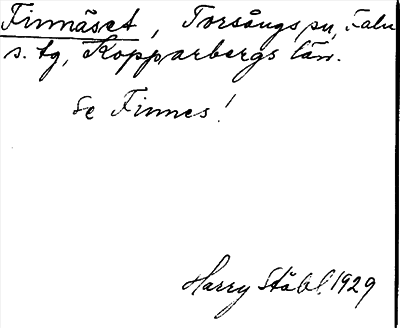 Finnäset, Torsångs sn, Falu
s. tg, Kopparbergs län.
Se Finnes!
Harry Ståhl 1929